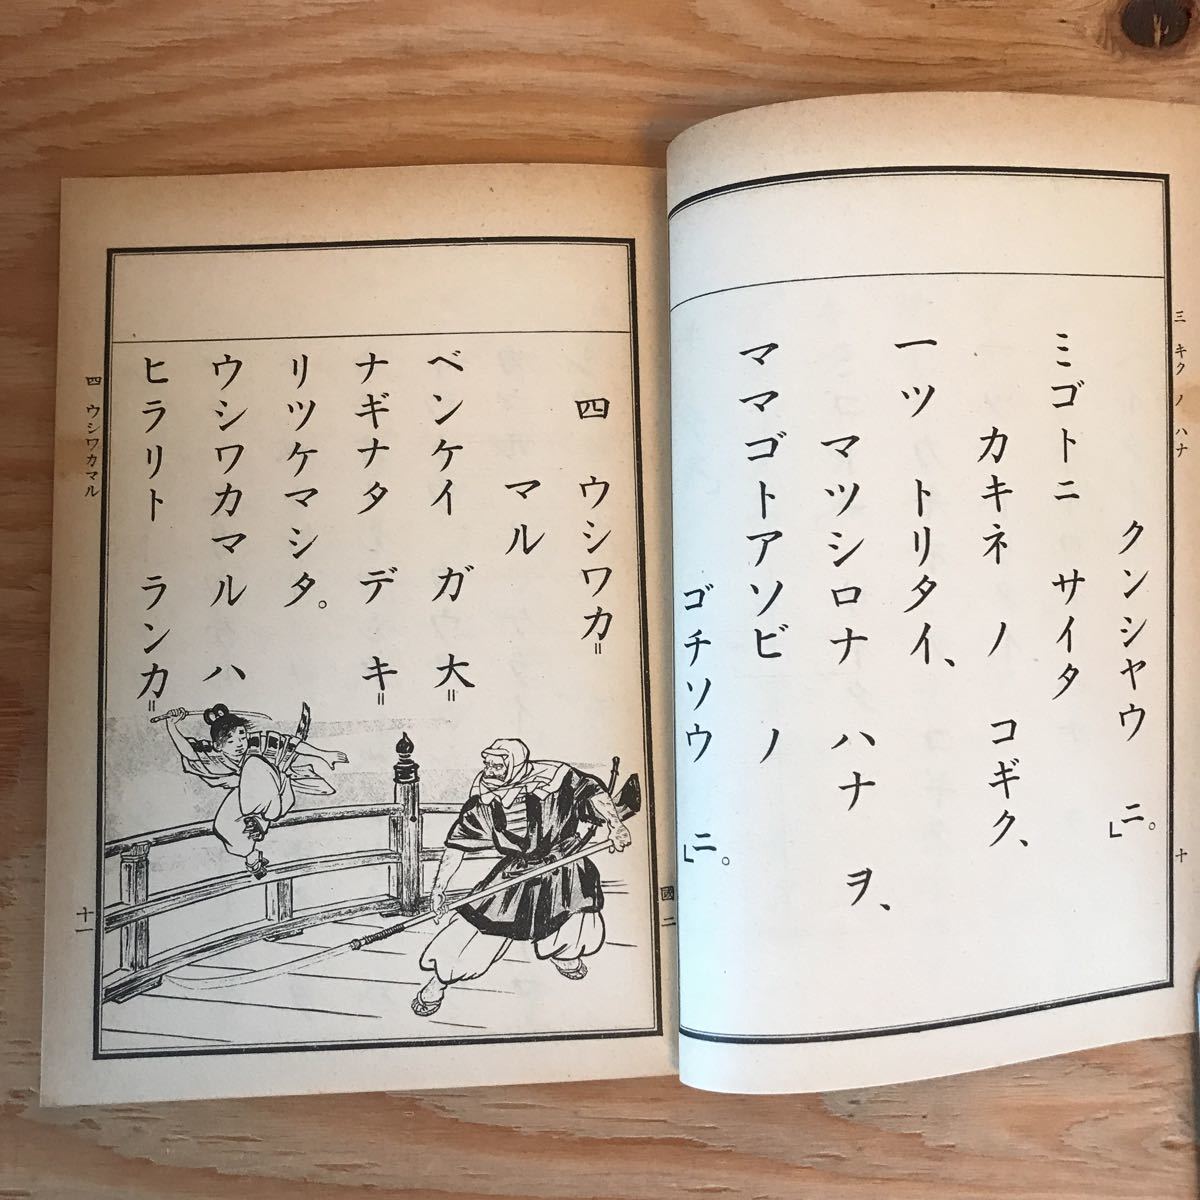 三 キク ノ ハナ
十
クンシヤウ ニ。」
ミゴトニ サイタ
カキネ ノ コギク、
一ツ トリタイ、
マツシロナ ハナ ヲ、
ママゴトアソビ ノ
ゴチソウ ニ。」
國二
四 ウシワカ＝
マル
ベンケイ ガ 大＝
ナギナタ デ キ＝
リツケマシタ。
ウシワカマル ハ
ヒラリト ランカ＝
四 ウシワカマル
十一